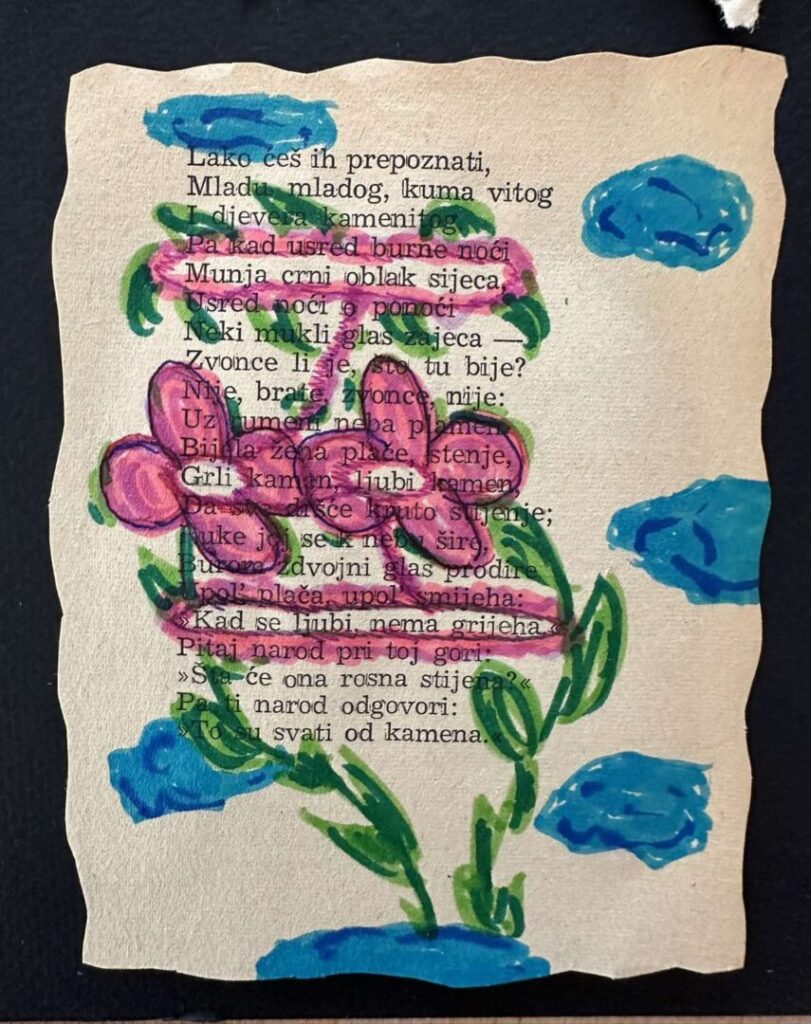 Lako ćeš ih prepoznati,
Mladu, mladog, kuma vitog
I djevera kamenitog
Pa kad usred burne noći
Munja crni oblak siječa,
Usred noći o ponoći
Neki mukli glas zaječa —
Zvonce li je, što tu bije?
Nije, brate, zvonce, nije:
Uz rumeni neba plamen
Bijela žena plače, stenje,
Grli kamen, ljubi kamen
Da sve dršće kruto stijenje;
Ruke joj se k nebu šire,
Burom zdvojni glas prodire
Upol' plača, upol' smijeha:
»Kad se ljubi, nema grijeha.«
Pitaj narod pri toj gori:
»Šta će ona rosna stijena?«
Pa ti narod odgovori:
»To su svati od kamena.«